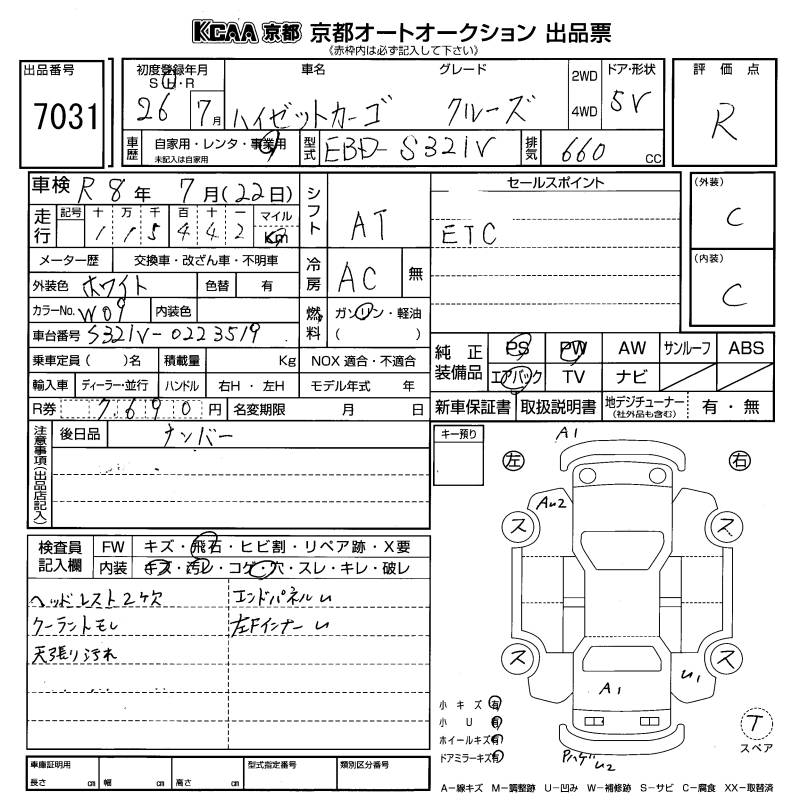 KCAA 京都 京都オートオークション 出品票
(赤枠内は必ず記入して下さい)
出品番号
7031
初度登録年月 車名 グレード 2WD ドア・形状
S H・R
26 7月 ハイゼットカーゴ クルーズ 4WD 5V
車歴 自家用・レンタ・事業用 型式 EBD-S321V 排気 660 CC
未記入は自家用
評価点
R
車検 R8年 7月(22日) シフト AT
走行 記号 十 万 千 百 十 一 マイル
1 1 5 4 4 2 Km
メーター歴 交換車・改ざん車・不明車 冷房 AC 無
外装色 ホワイト 色替 有
カラーNo. W09 内装色 燃料 ガソリン・軽油
( )
車台番号 S321V-0223519
乗車定員( )名 積載量 Kg NOX 適合・不適合
輸入車 ディーラー・並行 ハンドル 右H・左H モデル年式 年
R券 7,690円 名変期限 月 日
セールスポイント
ETC
(外装)
C
(内装)
C
純正装備品 PS PW AW サンルーフ ABS
エアバック TV ナビ
新車保証書 取扱説明書 地デジチューナー 有・無
(社外品も含む)
注意事項(出品店記入)
後日品 ナンバー
検査員記入欄 FW キズ・飛石・ヒビ割・リペア跡・X要
内装 キズ・汚レ・コゲ・穴・スレ・キレ・破レ
ヘッドレスト2ケ欠 エンドパネルU
クーラントモレ 左Fインナー U
天張り汚れ
キー預り
A1
左 右
AU2
ス ス
ス ス
U1
A1
小キズ 有
小U 有
ホイールキズ 有
ドアミラーキズ 有
PハゲU2
T
スペア
車庫証明用 型式指定番号 類別区分番号
長さ cm 幅 cm 高さ cm
A−線キズ M−調整跡 U−凹み W−補修跡 S−サビ C−腐食 XX−取替済